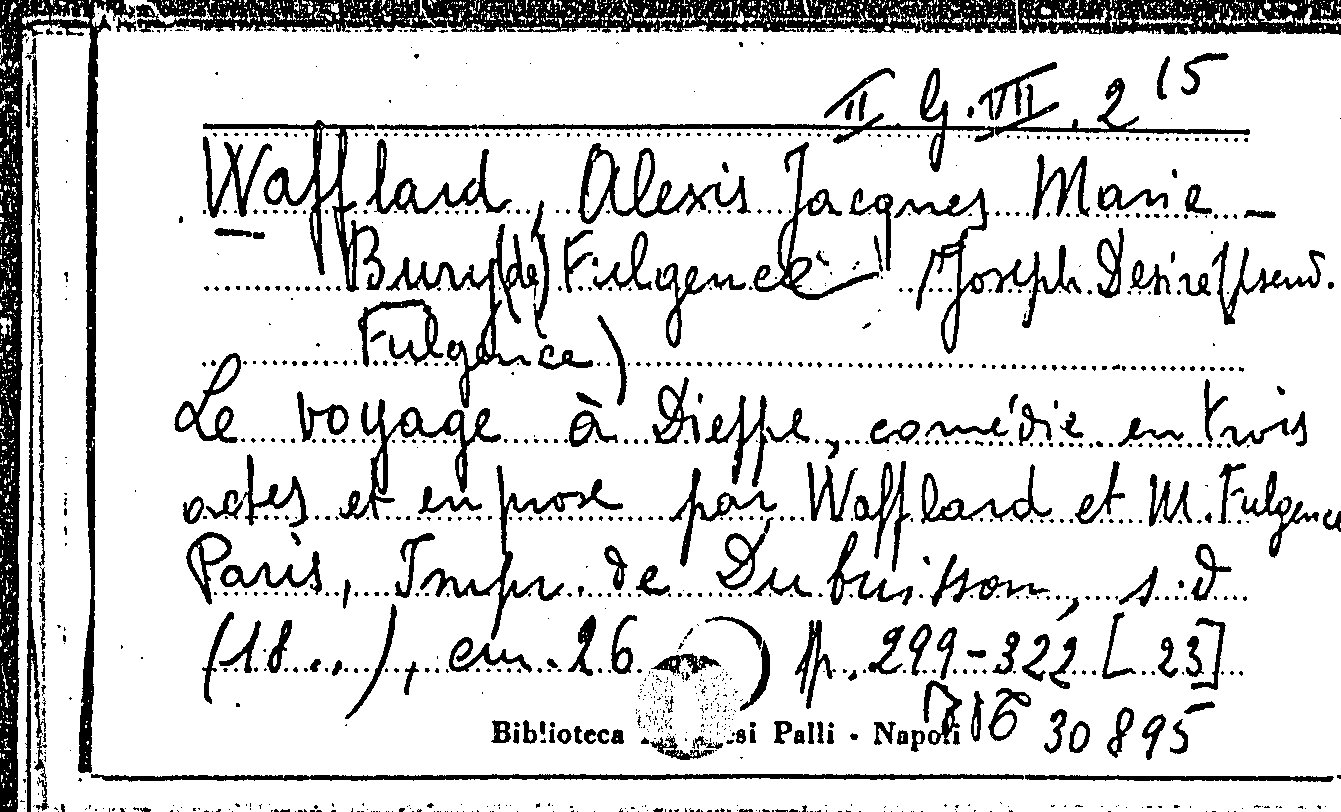 II. G. VII. 2 15
Wafflard, Alexis Jacques Marie -
Bury (de) Fulgence (Joseph Desiré pseud.
Fulgence)
Le voyage à Dieppe, comédie en trois
actes et en prose par Wafflard et M. Fulgence
Paris, Impr. de Dubuisson, s.d
(18..), cm. 26 p. 299-322 [23]
30895
Biblioteca si Palli - Napoli